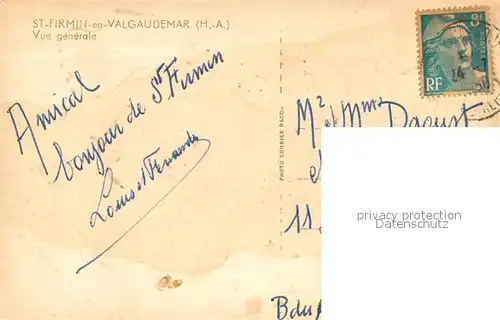 ST-FIRMIN-en-VALGAUDEMAR (H.-A.)
Vue générale
Amical
bonjour de St Firmin
Louis et Fernande
PHOTO COMBIER MACON
RF
14
Mr et Mme Daoust
11,
privacy protection
Datenschutz